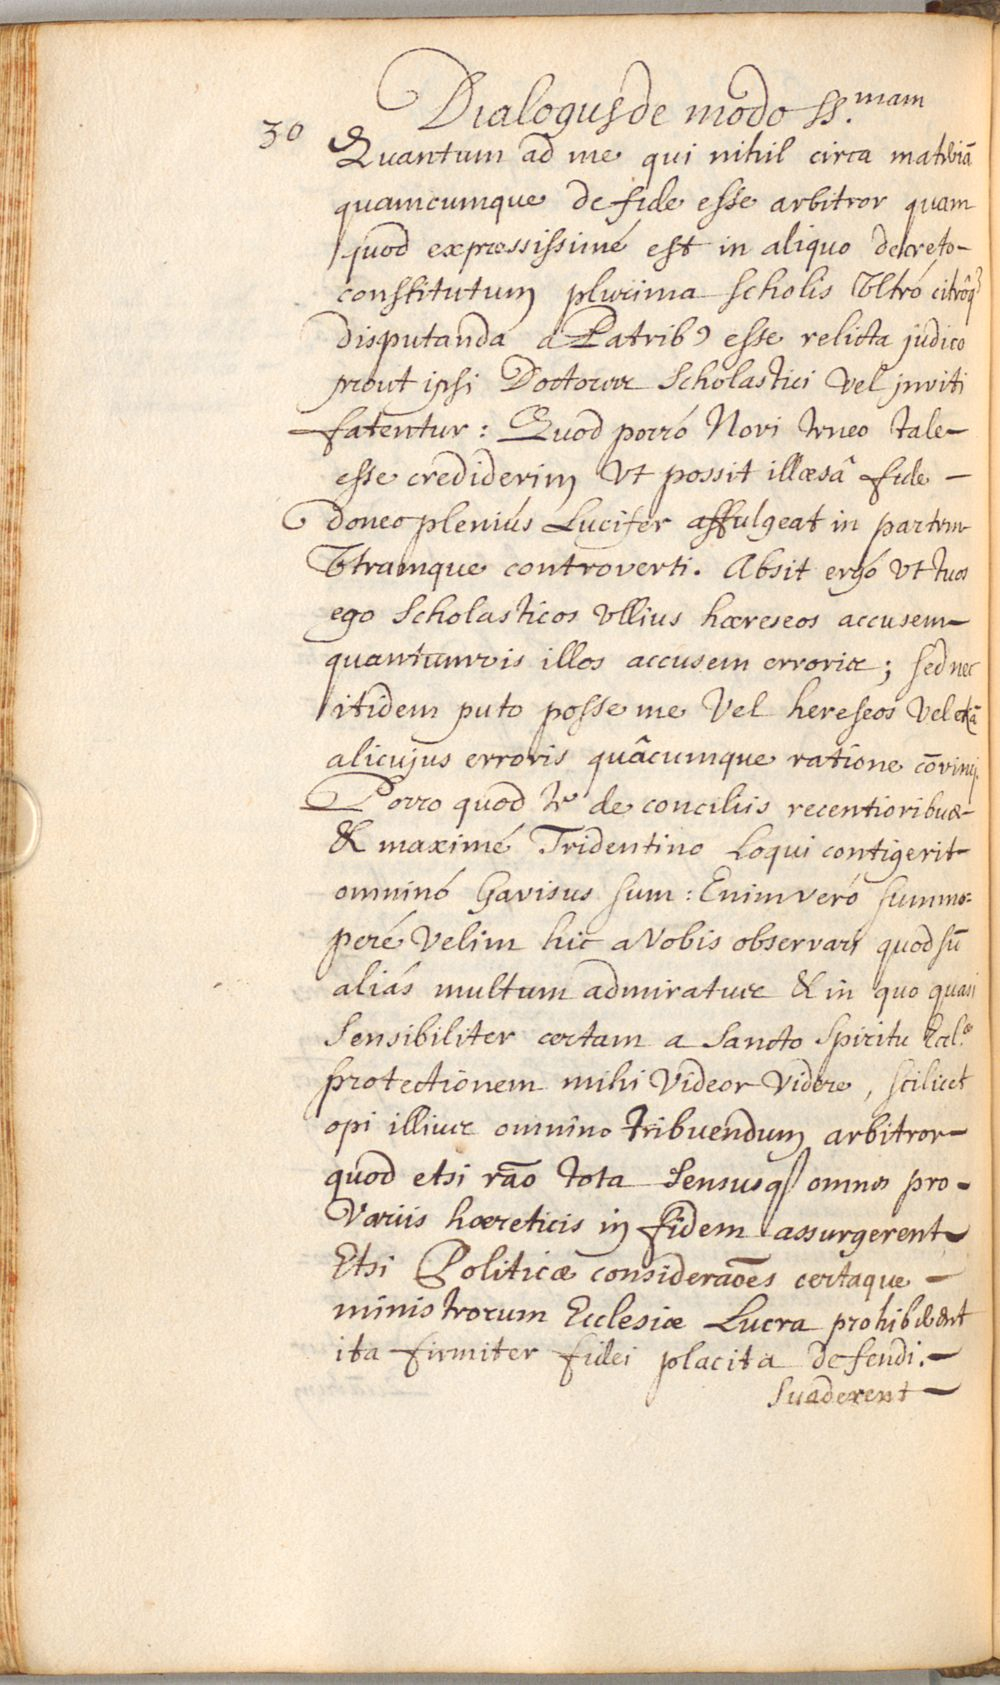 Dialogus de modo ss.mam
30
Quantum ad me qui nihil circa materiā
quamcumque de fide esse arbitror quam
quod expressissimé est in aliquo decreto-
constitutum plurima scholis Vltró citróq3
disputanda a Patrib9 esse relicta judico
prout ipsi Doctores Scholastici vel jnviti
fatentur: Quod porró Novi teneo tale-
esse crediderim Vt possit illæsâ fide -
donec pleniús Lucifer affulgeat in partem
Vtramque controverti. Absit ergó Vt tuos
ego Scholasticos Vllius hæreseos accusem-
quantumvis illos accusem erroris; sed nec
itidem puto posse me Vel hereseos Vel etiā
alicujus erroris quâcumque ratione cōvinci.
Porro quod te de conciliis recentioribus-
& maximé Tridentino Loqui contigerit-
omninó Gavisus sum: Enimveró summo=
peré Velim hic a Vobis observari quod sū
aliás multum admiratus & in quo quasi
Sensibiliter certam a Sancto Spiritu Eccl.æ
protectionem mihi Videor Videre, scilicet
opi illius omnino tribuendum arbitror-
quod etsi rāo tota Sensusq3 omnes pro-
Variis hæreticis in fidem assurgerent-
Etsi Politicæ consideraōes certaque -
ministrorum Ecclesiæ Lucra prohiberent
ita firmiter fidei placita defendi.-
Suaderent-